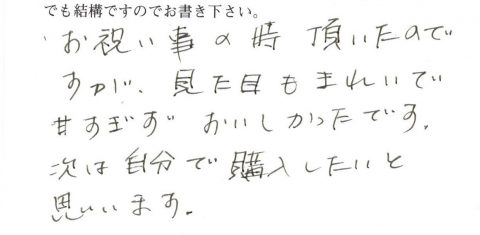 でも結構ですのでお書き下さい。
お祝い事の時 頂いたので
すが、見た目もきれいで
甘すぎず おいしかったです。
次は自分で購入したいと
思いいます。